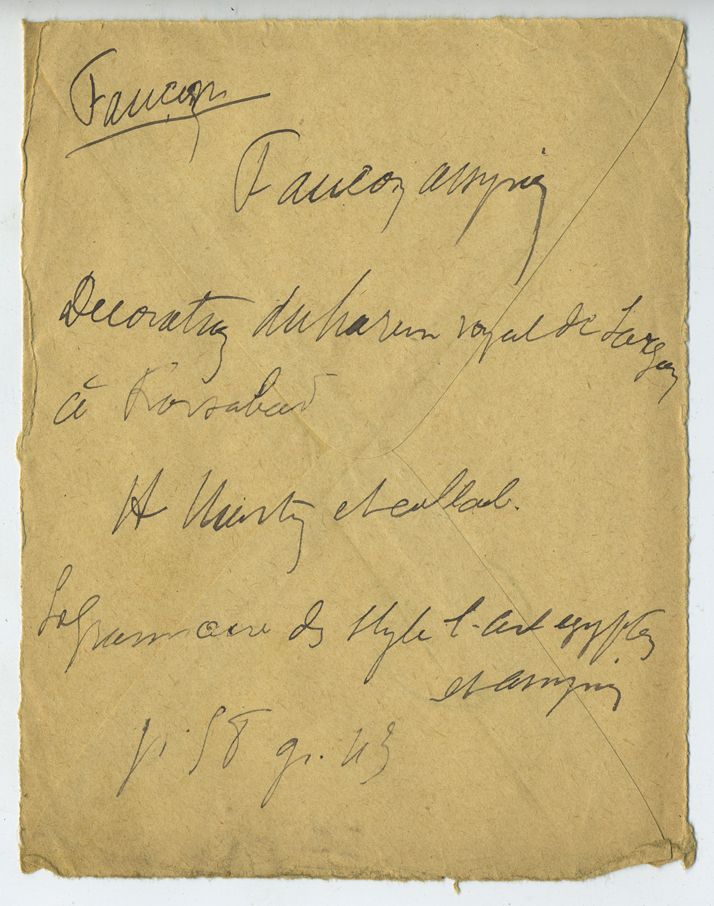 Faucon
Faucon assyrien
Decoration du harem royal de Sargon
à Korsabad
H Martin et collab.
La grammaire des styles l'art egyptien
et assyrien
p. 58 gr. 43